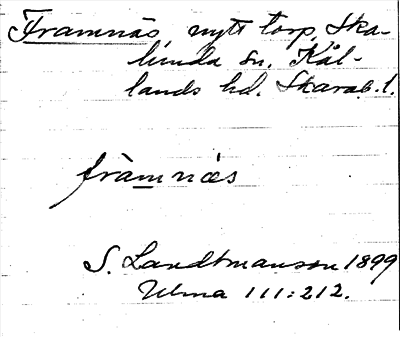 Framnäs, nytt torp, Ska-
lunda sn. Kål-
lands hd. Skarab. l.
fràmnæs
S. Landtmanson 1899
Ulma 111:212.